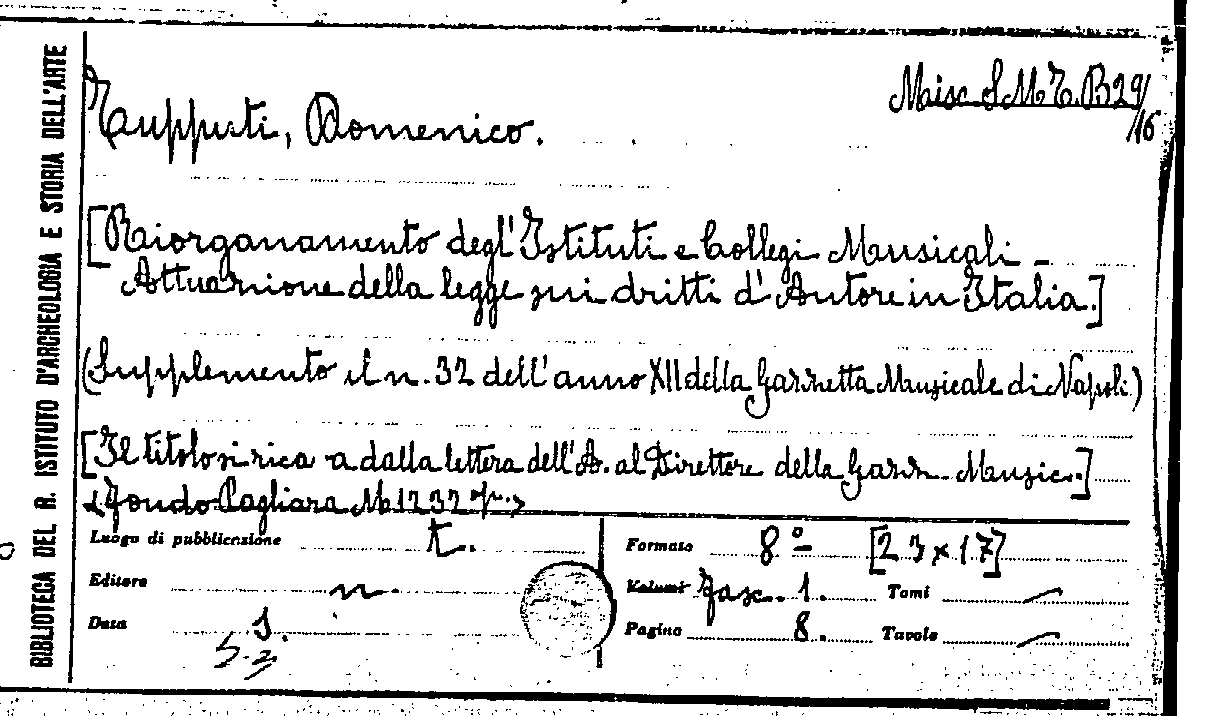 BIBLIOTECA DEL R. ISTITUTO D'ARCHEOLOGIA E STORIA DELL'ARTE
Misc. S. M. T. B 29/
/16
Tupputi, Domenico.
[Riorganamento degl'Istituti e Collegi Musicali -
Attuazione della legge sui dritti d'Autore in Italia.]
(Supplemento il n. 32 dell'anno XII della Gazzetta Musicale di Napoli)
[Il titolo si rica a dalla lettera dell'A. al Direttore della Gazz. Music..]
<fondo Pagliara M 1232
Luogo di pubblicazione t.
Editore n.
Data s.
Formato 8º [23x17]
Volumi fasc. 1. Tomi —
Pagine 8. Tavole —